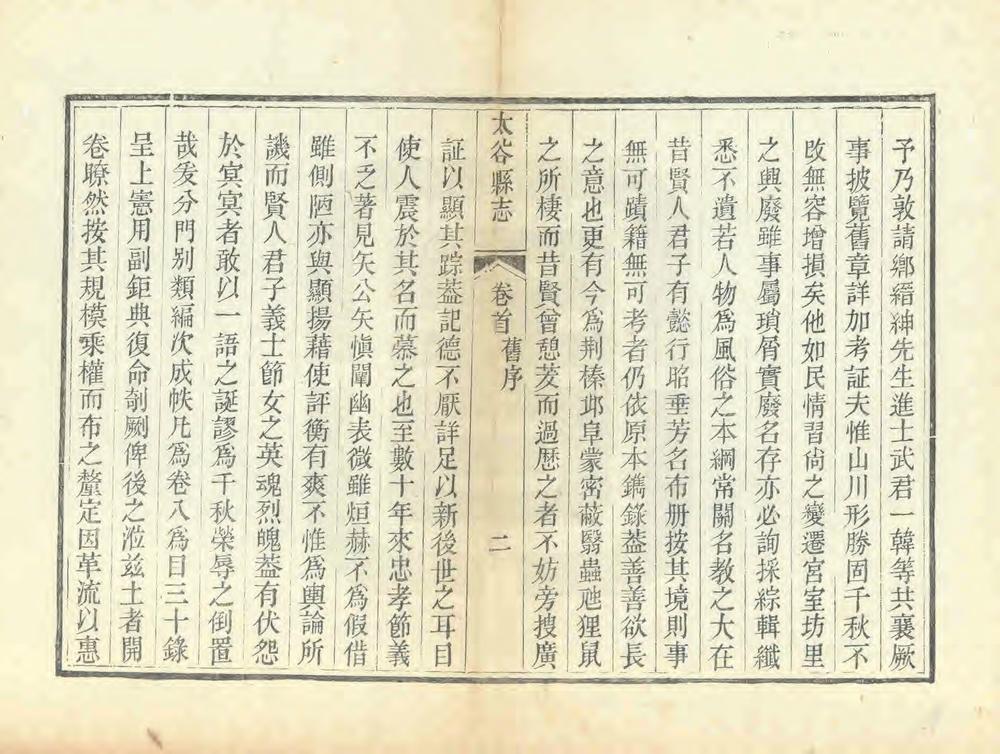 予乃敦請鄉縉紳先生進士武君一韓等共襄厥
事披覽舊章詳加考証夫惟山川形勝固千秋不
改無容增損矣他如民情習尙之變遷宮室坊里
之興廢雖事屬瑣屑實廢名存亦必詢採綜輯纖
悉不遺若人物爲風俗之本綱常關名教之大在
昔賢人君子有懿行昭垂芳名布册按其境則事
無可蹟籍無可考者仍依原本鐫錄葢善善欲長
之意也更有今爲荆榛邱阜蒙密蔽翳蟲虺狸鼠
之所棲而昔賢曾憩茇而過歷之者不妨旁搜廣
太谷縣志 卷首 舊序 二
証以顯其踪葢記德不厭詳足以新後世之耳目
使人震於其名而慕之也至數十年來忠孝節義
不乏著見矢公矢愼闡幽表微雖烜赫不爲假借
雖側陋亦與顯揚藉使評衡有爽不惟爲輿論所
譏而賢人君子義士節女之英魂烈魄葢有伏怨
於㝠㝠者敢以一語之誕謬爲千秋榮辱之倒置
哉爰分門別類編次成帙凡爲卷八爲目三十錄
呈上憲用副鉅典復命剞劂俾後之涖兹土者開
卷瞭然按其規模乘權而布之釐定因革流以惠